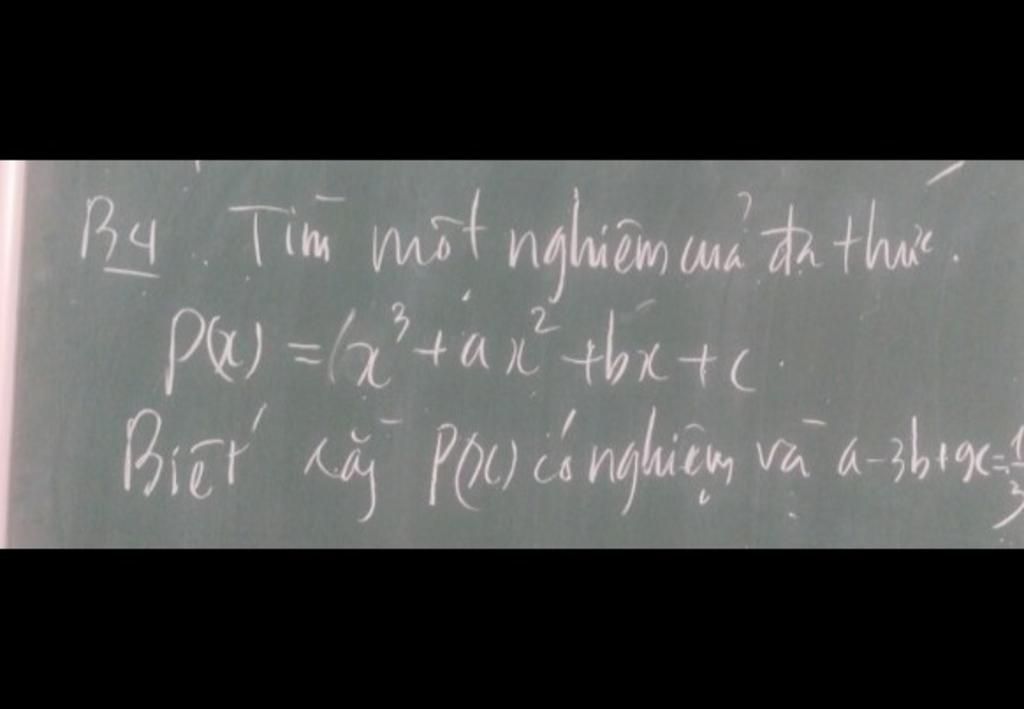 B4. Tìm một nghiệm của đa thức.
P(x) = x³ + ax² + bx + c.
Biết rằng P(x) có nghiệm và a-3b+9c=1/3